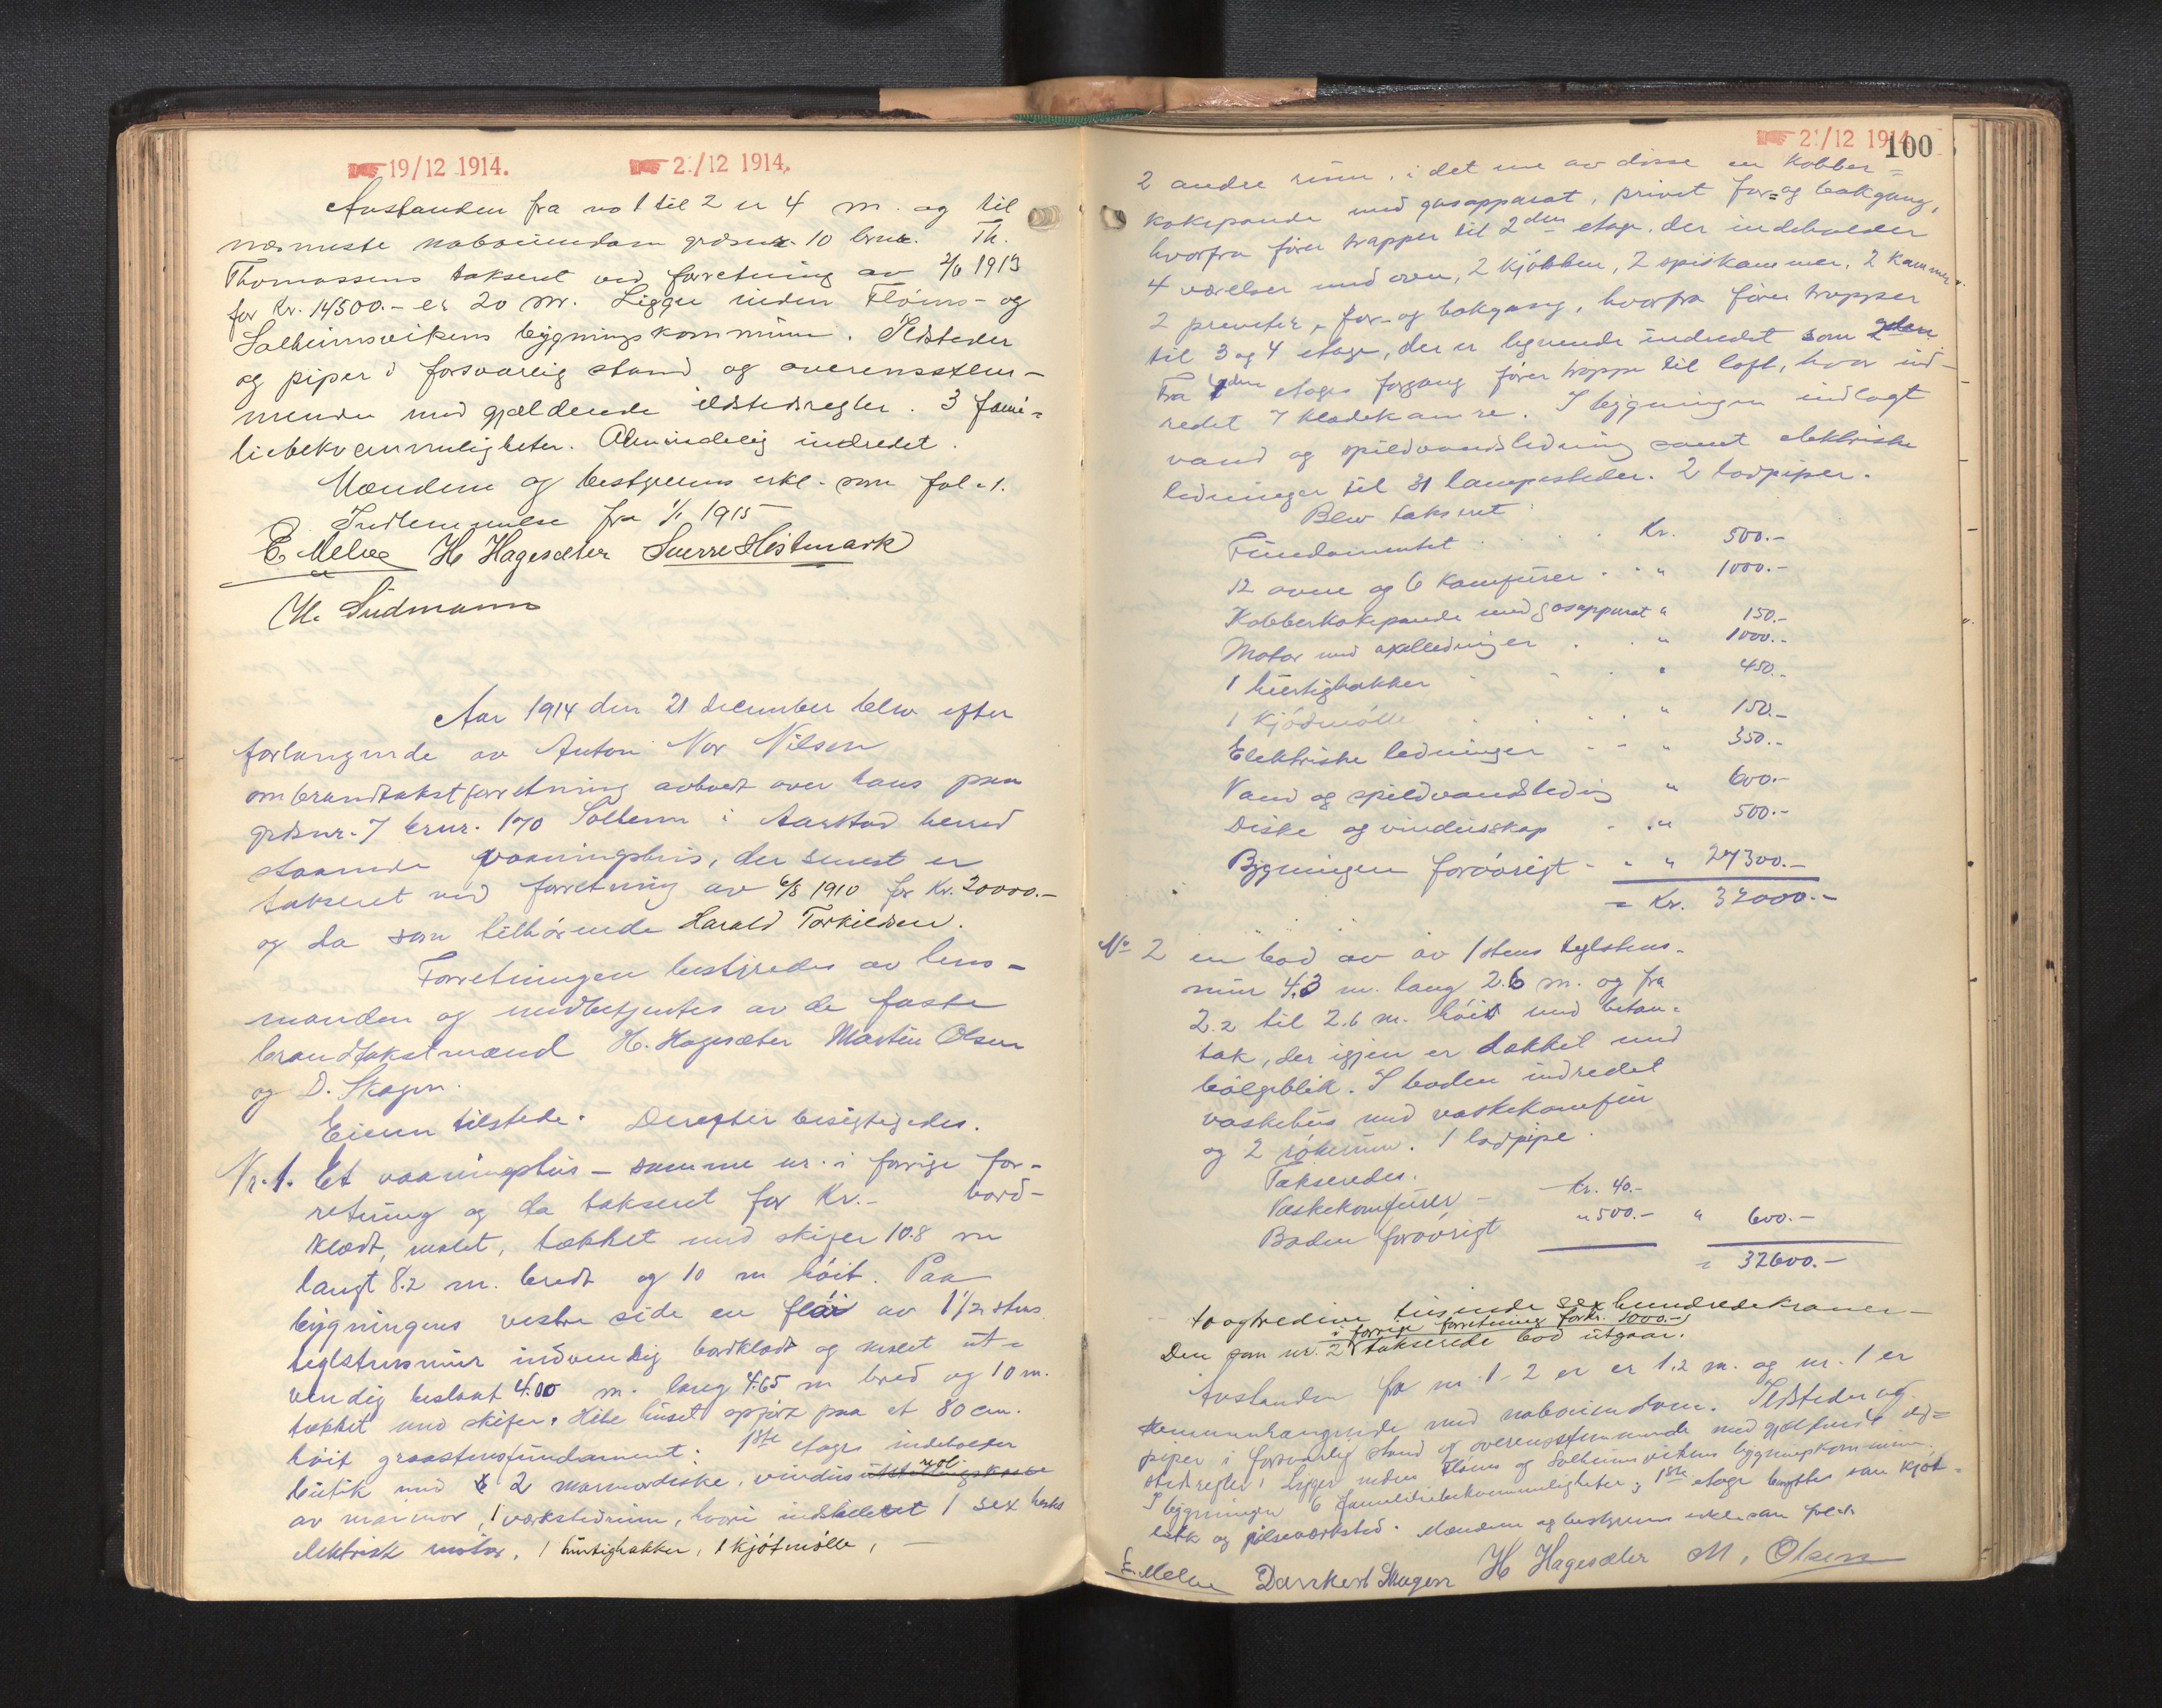 19/12 1914. 2./12 1914.
Avstanden fra no 1 til 2 er 4 m. og til
nærmeste naboeiendom grdsnr. 10 brnr. Th.
Thomassens takseret ved forretning av 2/6 1913
for Kr. 14500.- er 20 m. Ligger inden Fløens- og
Solheimsvikens bygningskommune. Ildsteder
og piper i forsvarlig stand og overensstem-
mende med gjældende ildstedsregler. 3 fami=
liebekvemmeligheter. Almindelig indredet.
Mændene og bestyrerens erkl. som fol. 1.
Indlemmelse fra 1/1 1915
E. Melve H Hagesæter Sverre Hestmark
H. Sudmann
Aar 1914 den 21 december blev efter
forlangende av Anton Nor Nilsen
ombrandtakstforretning avholdt over hans paa
grdsnr. 7 brnr. 170 Solheim i Aarstad herred
staaende vaaningshus, der senest er
takseret ved forretning av 6/8 1910 for Kr. 20000.-
og da som tilhørende Harald Torkildsen.
Forretningen bestyredes av lens-
manden og medbetjentes av de faste
brandtakstmænd H. Hagesæter Martin Olsen
og D. Skagen.
Eieren tilstede. Derefter besigtigedes.
Nr. 1. Et vaaningshus - samme nr. i forrige for-
retning og da takseret for Kr.- bord-
klædt, malet, tækket med skifer 10.8 m
langt 8.2 m. bredt og 10 m høit. Paa
bygningens vestre side en fløi av 1 1/2 stens
teglstensmur indvendig bordklædt og malet ut-
vendig beslaat 4.00 m. lang 4.65 m bred og 10 m.
tækket med skifer. Hele huset opført paa et 80 cm.
høit graastensfundament. 1ste etage indeholder
butik med 2 marmordiske, vindus
av marmor, 1 verkstedsrum, hvori indstalleret 1 sex hests
elektrisk motor, 1 hurtighakker, 1 kjøtmølle,
2./12 1914.
100
2 andre rum, i det ene av disse en kobber=
kokepande med gasapparat, privet for= og bakgang,
hvorfra fører trapper til 2den etage, der indeholder
4 værelser med ovn, 2 kjøkken, 2 spiskammer, 2 kammer.
2 priveter, for- og bakgang, hvorfra fører trapper
til 3 og 4 etage, der er lignende indredet som 2den.
Fra 4de etages forgang fører trappe til loft, hvor ind-
redet 7 klædekamre. I bygningen indlagt
vand og spildvandsledning samt elektriske
ledninger til 31 lampesteder. 2 lodpiper.
Blev takseret:
Fundamentet . . . . Kr. 500.-
12 ovne og 6 Komfurer . . " 1000.-
Kobberkokepande med gasapparat " 150.-
Motor med axelledninger . . " 1000.-
1 hurtighakker . . . . " 450.-
1 Kjødmølle . . . . " 150.-
Elektriske ledninger - - " 350.-
Vand og spildvandsledning " 600.-
Diske og vindusskap . . " 500.-
Bygningen forøvrigt - - " 27300.-
= Kr. 32000.-
No 2 en bod av av 1 stens teglstens-
mur 4.3 m. lang 2.6 m. og fra
2.2 til 2.6 m. høit med betan=
tak, der igjen er tækket med
bølgeblik. I boden indredet
vaskehus med vaskekomfur
og 2 røkerum. 1 lodpipe.
Takseredes.
Vaskekomfuren - Kr. 40.-
Boden forøvrigt " 500.- " 600.-
= 32600.-
to og tredive tusinde sex hundrede kroner -
i forrige forretning for kr. 1000.-
Den som nr. 2 takserede bod utgaar.
Avstanden fra nr. 1-2 er er 1.2 m. og nr. 1 er
sammenhængende med naboeiendom. Ildsteder og
piper i forsvarlig stand og overensstemmende med gjældende ild=
stedsregler. Ligger inden Fløens og Solheimsvikens bygningskommune.
I bygningen 6 familiebekvemmeligheter, 1ste etage benyttes som kjøt-
butik og pølseverksted. Mændene og bestyrerens erkl. som fol. 1.
E. Melve Dankert Skagen H Hagesæter M. Olsen